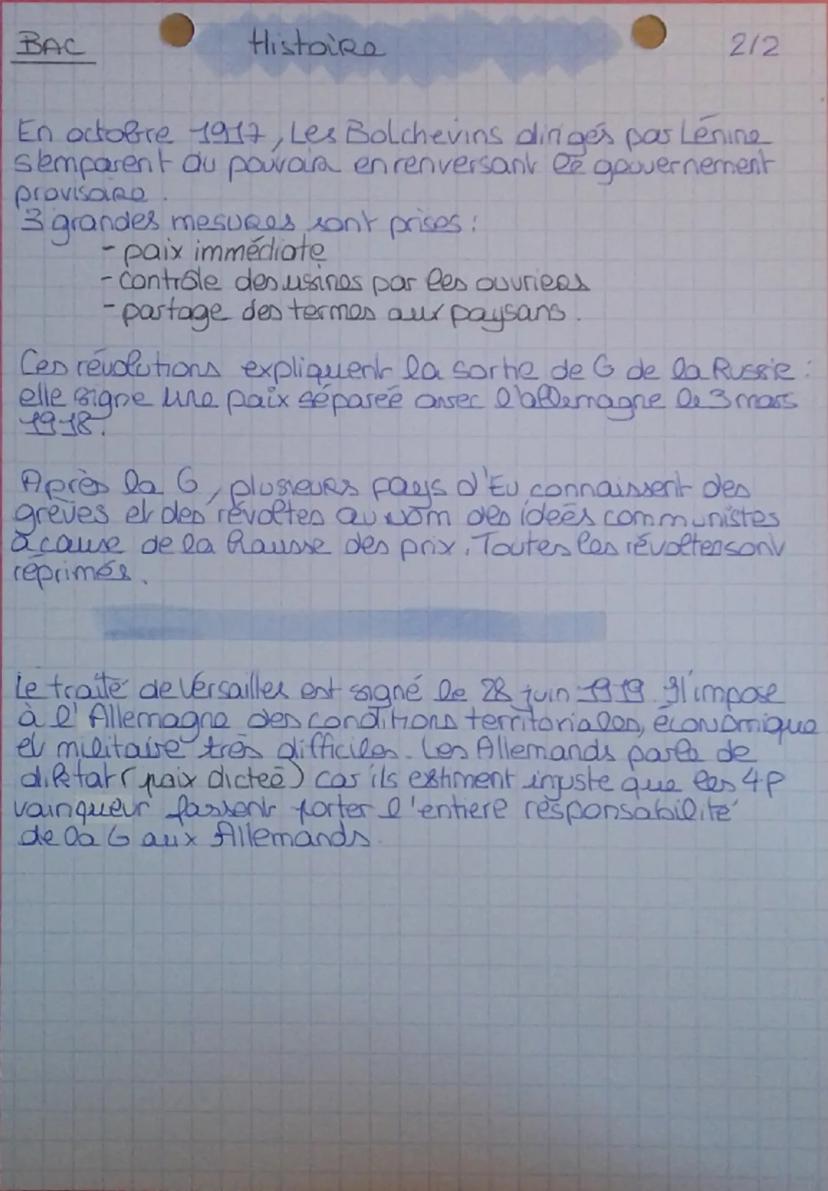 BAC Histoire 2/2
En octobre 1917, Les Bolchevins dirigés par Lénine
s'emparent du pouvoir en renversant le gouvernement
provisoire.
3 grandes mesures sont prises :
- paix immédiate
- contrôle des usines par les ouvriers
- partage des termes aux paysans.
Ces révolutions expliquent la sortie de G de la Russie :
elle signe une paix séparée avec l'allemagne le 3 mars
1918.
Après la G, plusieurs pays d'Eu connaissent des
grèves et des révoltes au nom des idées communistes
à cause de la hausse des prix. Toutes les révoltes sont
réprimés.
Le traité de Versailles est signé le 28 juin 1919. Il impose
à l'Allemagne des conditions territoriales, économique
et militaire très difficiles. Les Allemands parle de
diktat (paix dictée) car ils estiment injuste que les 4P
vainqueur fassent porter l'entière responsabilité
de la G aux Allemands.